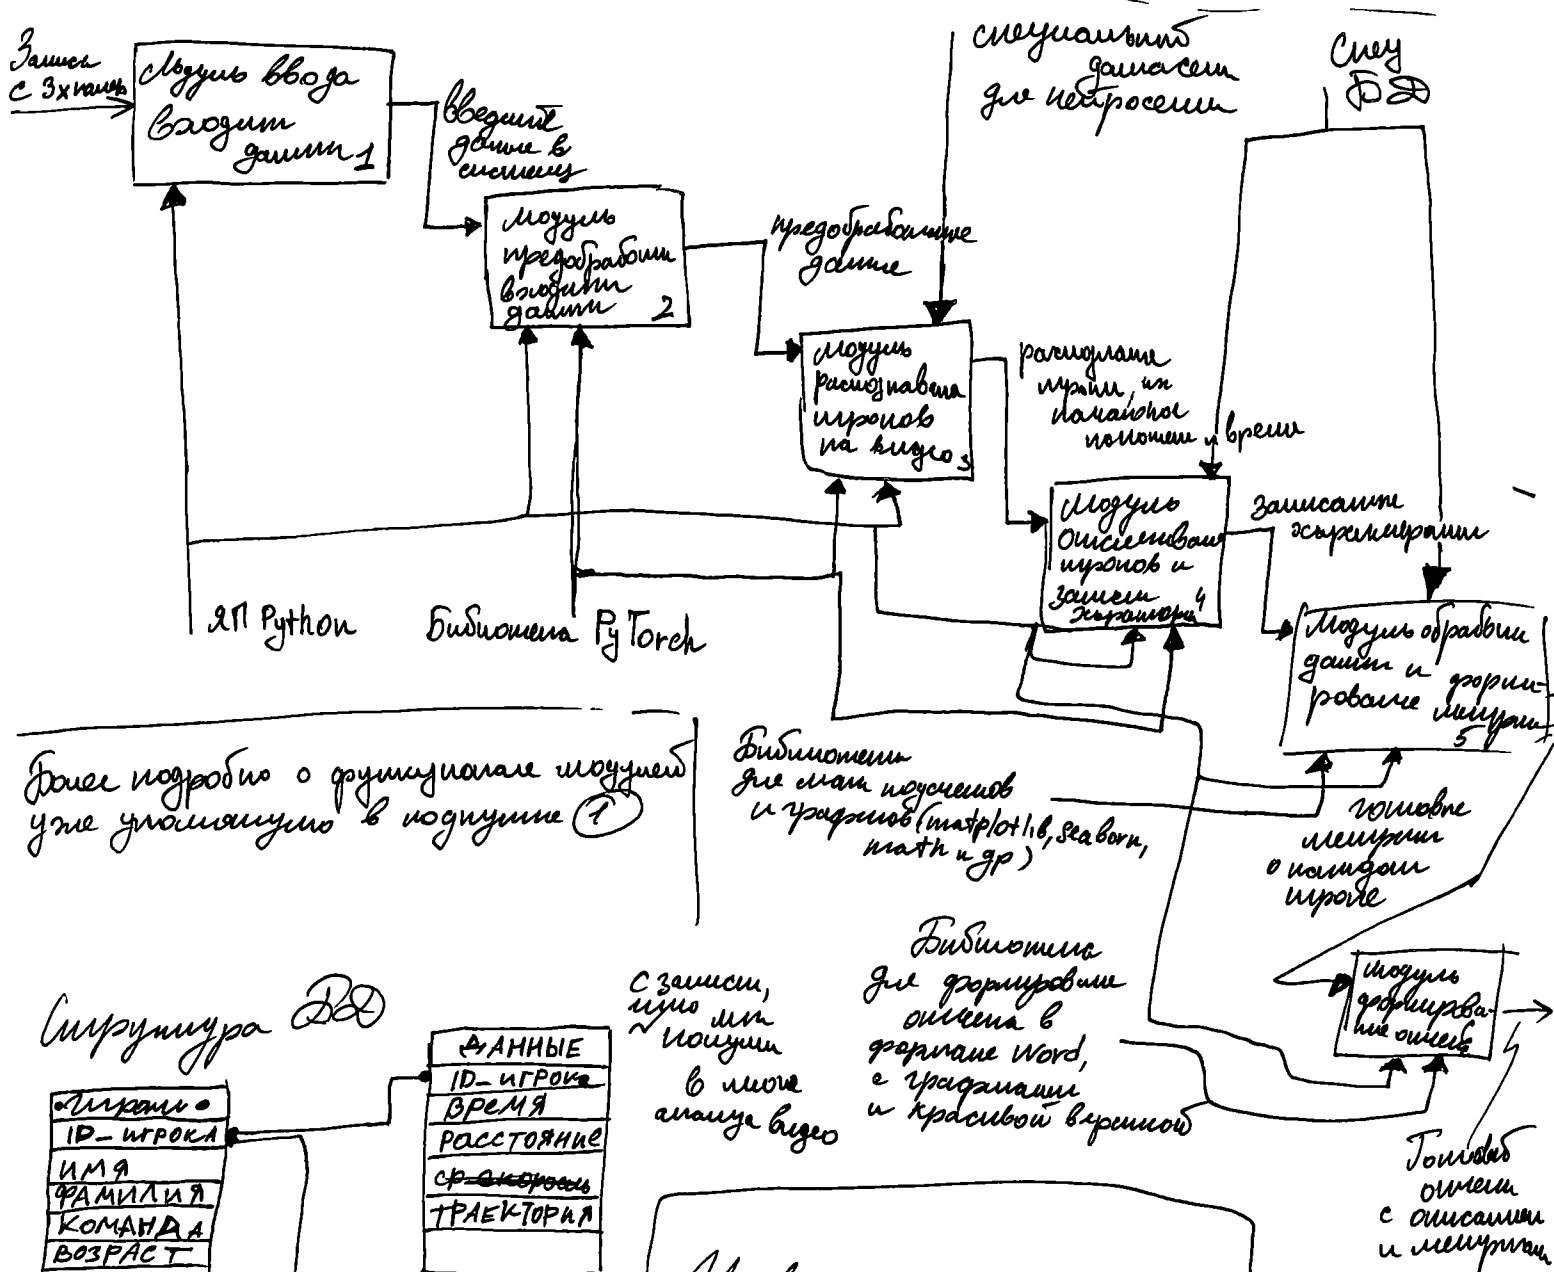 Записи
с 3х камер
Модуль ввода
входит
данны 1
введите
данные в
систему
Модуль
предобработки
входить
данны 2
предобработанные
данные
специальный
датасет
для нейросети
Спец
БД
Модуль
распознавания
игроков
на видео 3
игроки, их
положен и время
Модуль
отслеживания
игроков и
записи 4
Записанные
характеристики
Модуль обработки
данны и форми-
рование метрик
5
ЯП Python
Библиотека PyTorch
Более подробно о функционале модулей
уже упомянуто в подпункте 1
Библиотеки
для мат подсчетов
и графиков (matplotlib, seaborn,
math и др)
готовые
метрики
о каждом
игроке
Библиотека
для формирования
отчета в
формате Word,
с графиками
и красивой версткой
Модуль
формирова-
ние отчета
Готовый
отчет
с описанием
и метриками
Структура БД
С записи,
что мы
получили
в итоге
анализа видео
Игроки
ID_ИГРОКА
ИМЯ
ФАМИЛИЯ
КОМАНДА
ВОЗРАСТ
ДАННЫЕ
ID_ИГРОКА
ВРЕМЯ
РАССТОЯНИЕ
ср скорость
ТРАЕКТОРИЯ